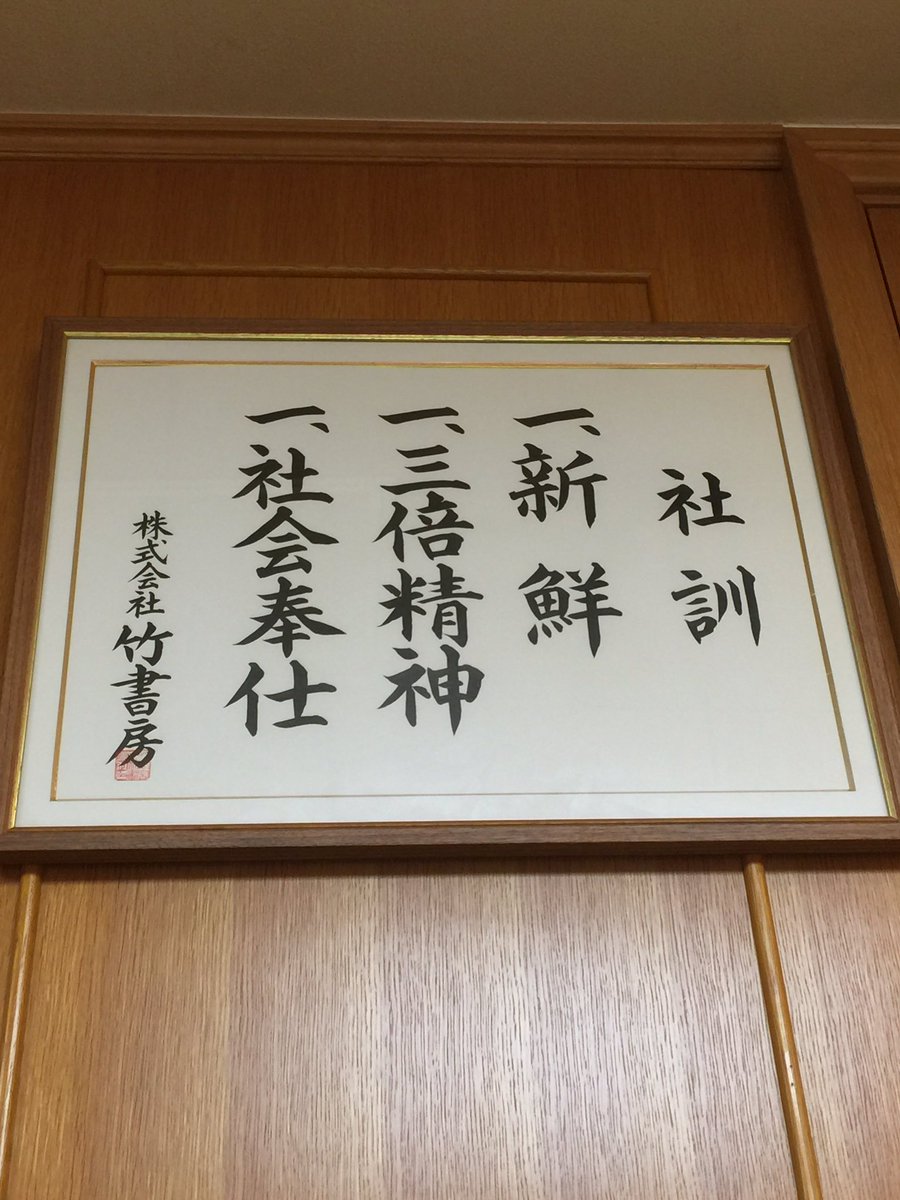 社訓
一、新鮮
一、三倍精神
一、社会奉仕
株式会社竹書房